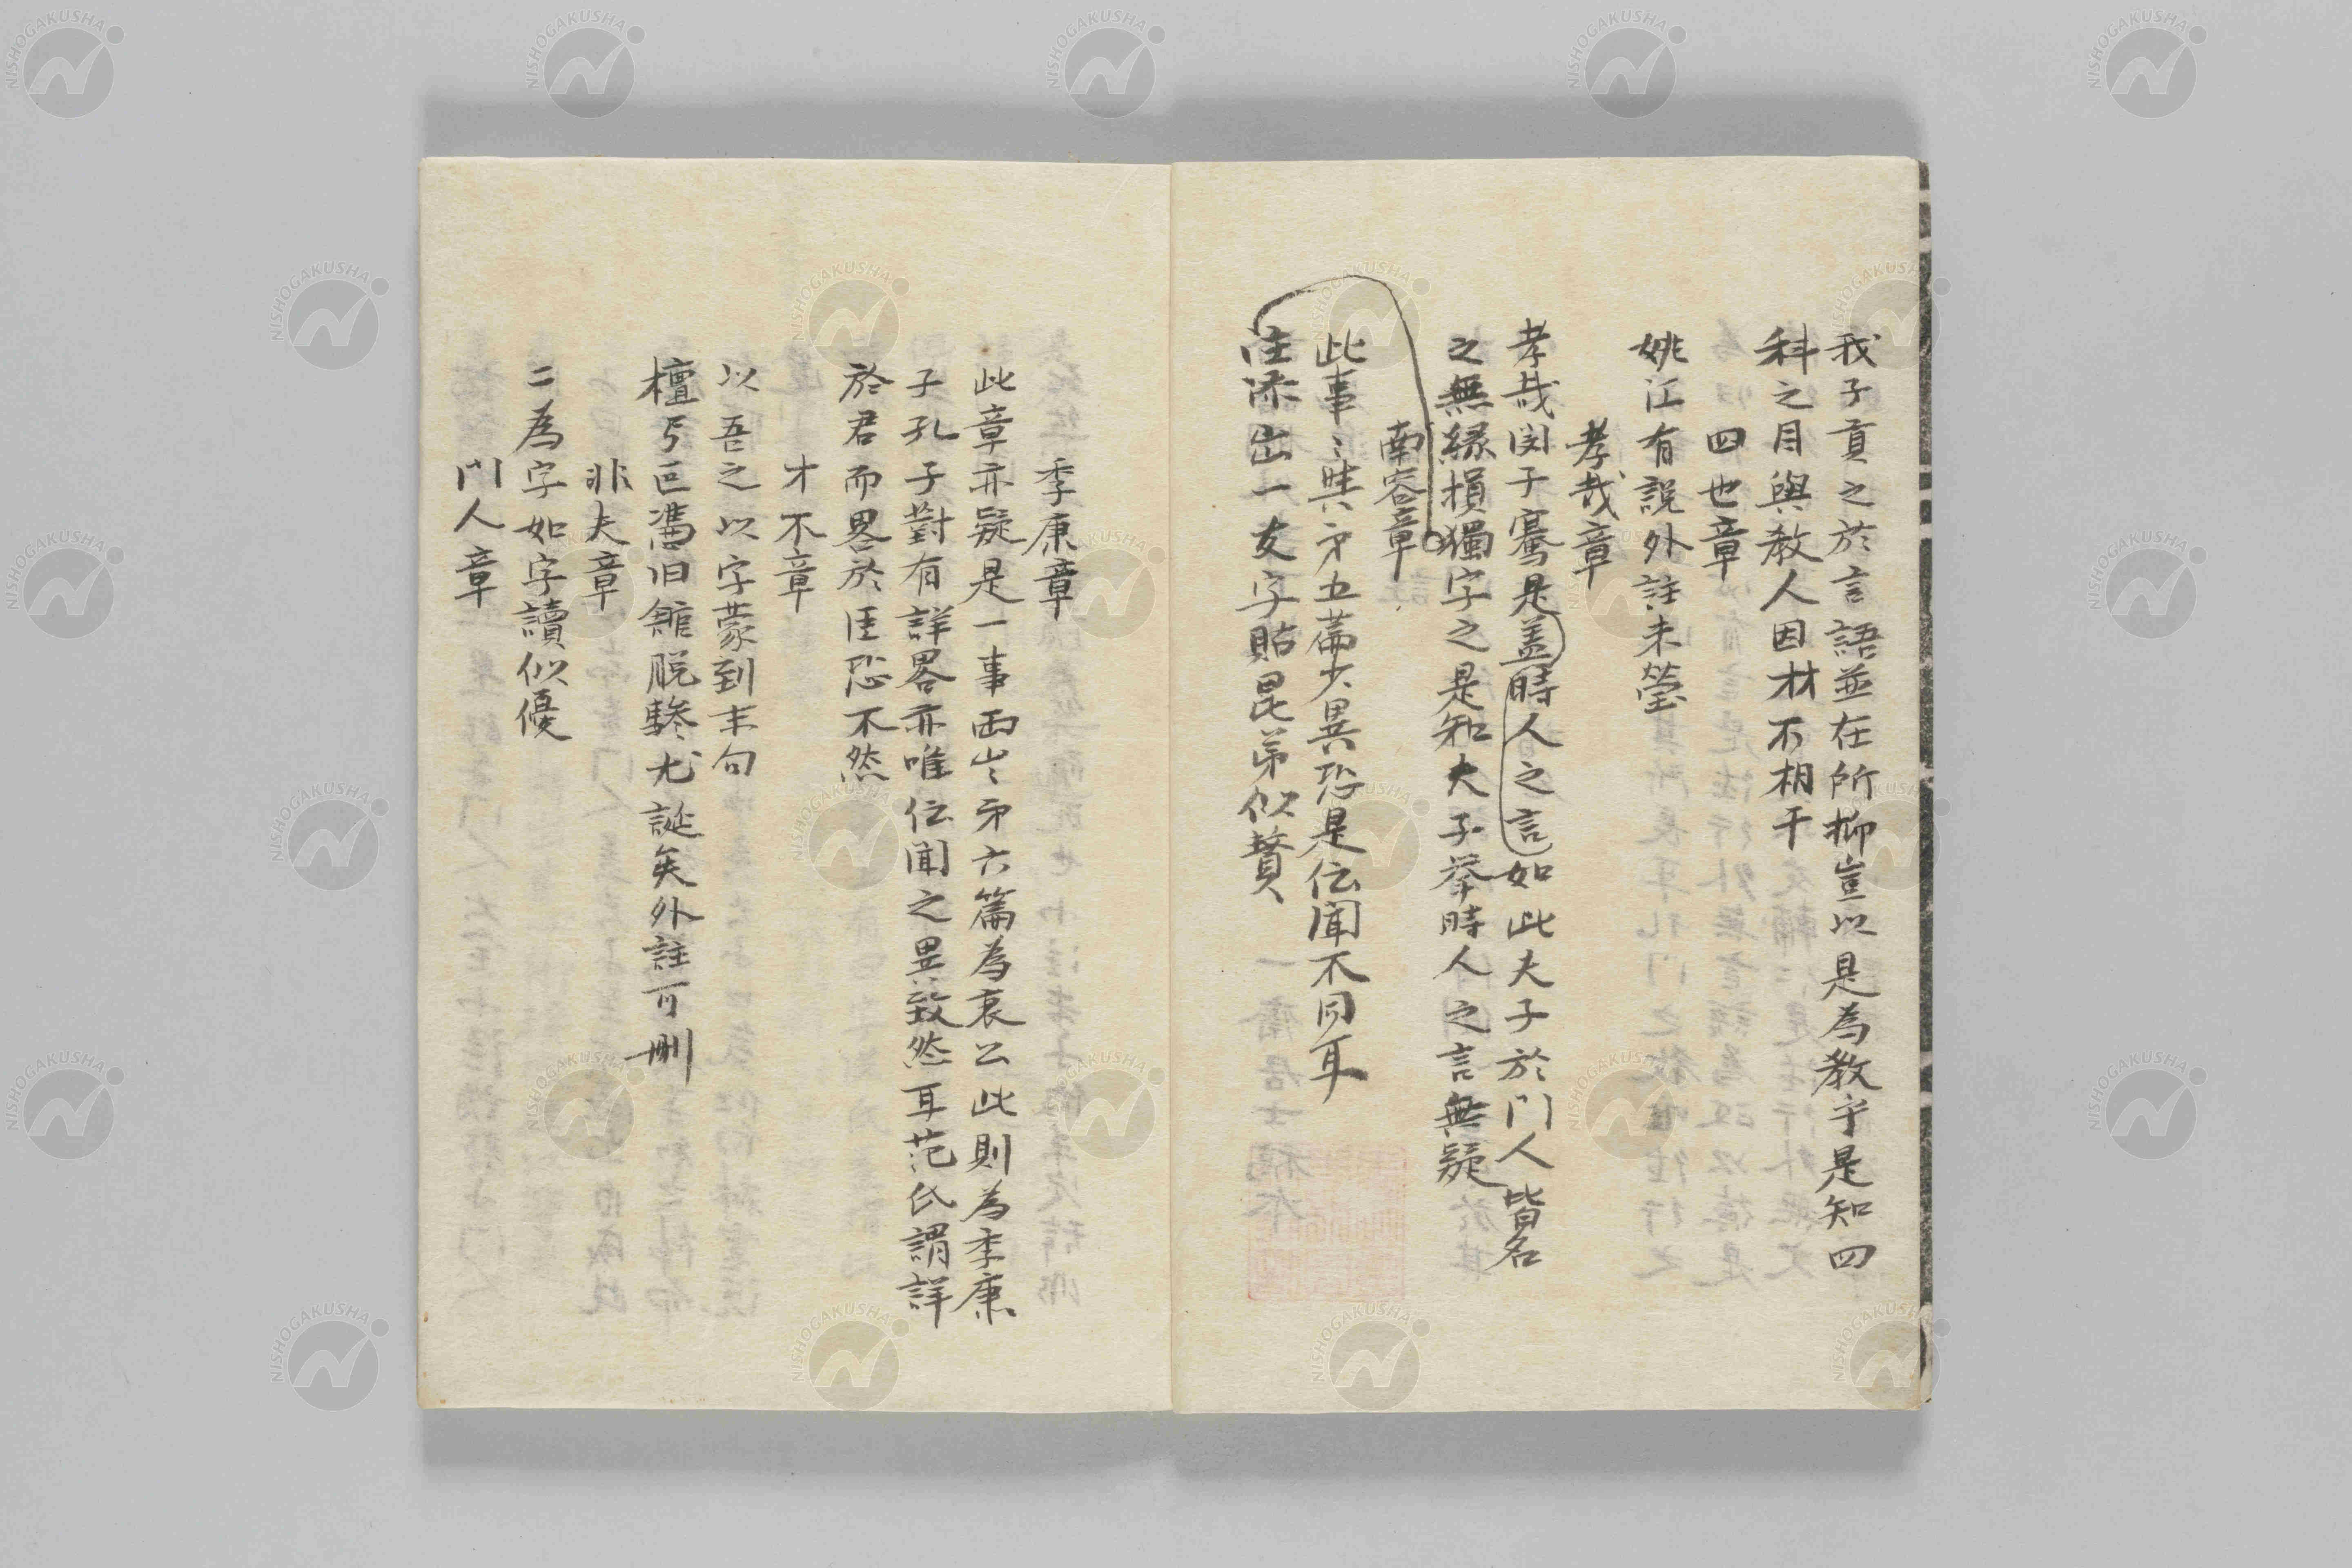 我子貢之於言語並在所抑豈以是為教乎是知四
科之目與教人因材不相干
四也章
姚江有說外註未瑩
孝哉章
孝哉閔子騫是盖時人之言如此夫子於門人皆名
之無緣損獨字之是知夫子举時人之言無疑
南容章
此事〻與㐧五萹少異恐是伝聞不同耳
注添出一友字貼昆弟似贅
季康章
此章亦疑是一事而㞢㐧六篇為哀公此則為季康
子孔子對有詳畧亦唯伝聞之異致然耳范氏謂詳
於君而畧於臣恐不然
才不章
以吾之以字蒙到末句
檀弓已遇旧館脱驂尤誕矣外註可刪
非夫章
二為字如字讀似優
門人章
NISHOGAKUSHA